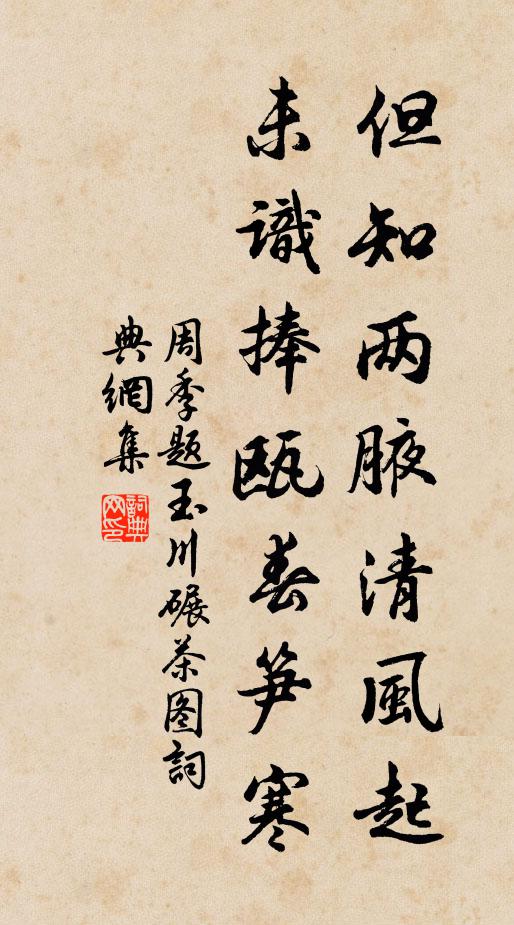 但知两腋清風起
未識捧甌春笋寒
周季题玉川碾茶图詞
典網集
詞典网印